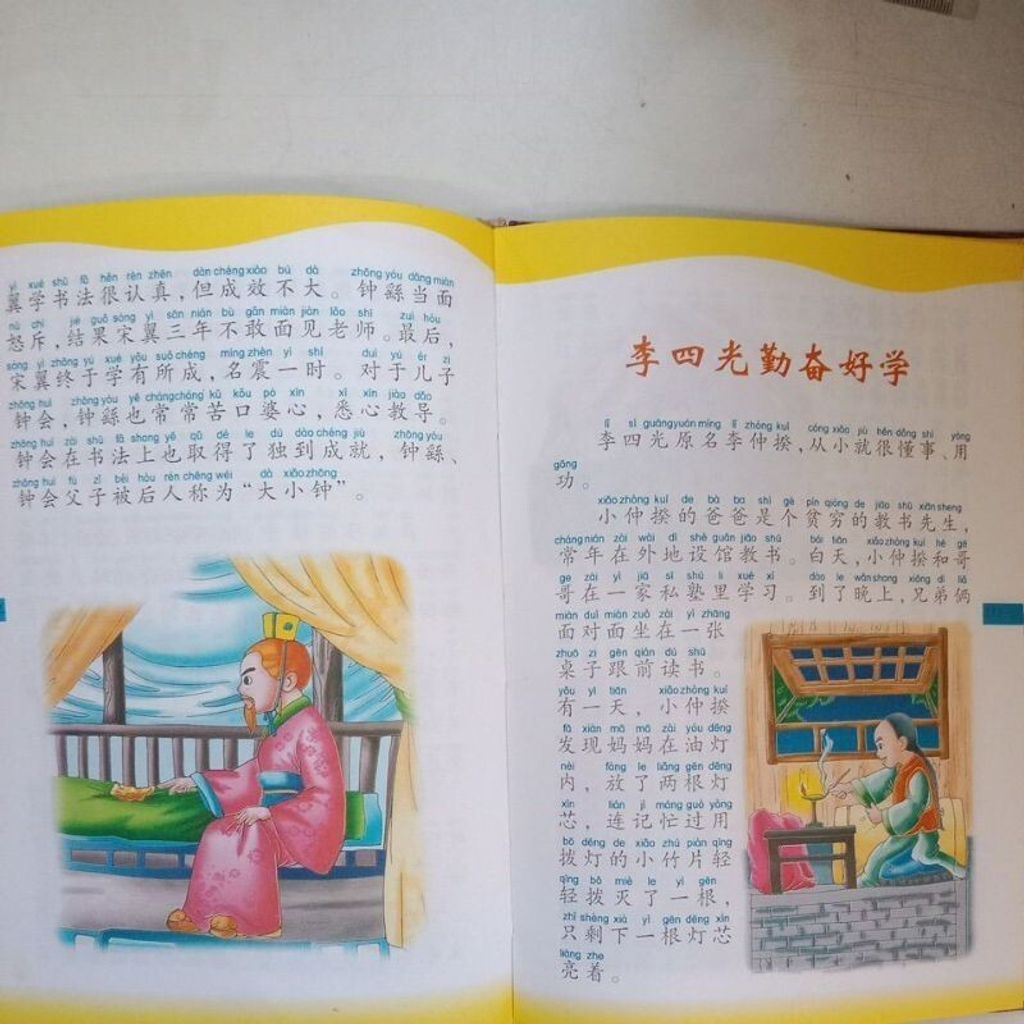 yì xué shū fǎ hěn rèn zhēn dàn chéng xiào bú dà zhōng yóu dāng miàn
翼学书法很认真，但成效不大。钟繇当面
nù chì jié guǒ sòng yì sān nián bù gǎn miàn jiàn lǎo shī zuì hòu
怒斥，结果宋翼三年不敢面见老师。最后，
sòng yì zhōng yú xué yǒu suǒ chéng míng zhèn yì shí duì yú ér zi
宋翼终于学有所成，名震一时。对于儿子
zhōng huì zhōng yóu yě cháng cháng kǔ kǒu pó xīn xī xīn jiào dǎo
钟会，钟繇也常常苦口婆心，悉心教导。
zhōng huì zài shū fǎ shang yě qǔ dé le dú dào chéng jiù zhōng yóu
钟会在书法上也取得了独到成就，钟繇、
zhōng huì fù zǐ bèi hòu rén chēng wéi dà xiǎo zhōng
钟会父子被后人称为“大小钟”。
李四光勤奋好学
lǐ sì guāng yuán míng lǐ zhòng kuí cóng xiǎo jiù hěn dǒng shì yòng
李四光原名李仲揆，从小就很懂事、用
gōng
功。
xiǎo zhòng kuí de bà ba shì gè pín qióng de jiāo shū xiān sheng
小仲揆的爸爸是个贫穷的教书先生，
cháng nián zài wài dì shè guǎn jiāo shū bái tiān xiǎo zhòng kuí hé gē
常年在外地设馆教书。白天，小仲揆和哥
ge zài yì jiā sī shú li xué xí dào le wǎn shang xiōng dì liǎ
哥在一家私塾里学习。到了晚上，兄弟俩
miàn duì miàn zuò zài yì zhāng
面对面坐在一张
zhuō zi gēn qián dú shū
桌子跟前读书。
yǒu yì tiān xiǎo zhòng kuí
有一天，小仲揆
fā xiàn mā ma zài yóu dēng
发现妈妈在油灯
nèi fàng le liǎng gēn dēng
内，放了两根灯
xīn lián jì máng guò yòng
芯，连记忙过用
bō dēng de xiǎo zhú piàn qīng
拨灯的小竹片轻
qīng bō miè le yì gēn
轻拨灭了一根，
zhǐ shèng xià yì gēn dēng xīn
只剩下一根灯芯
liàng zhe
亮着。